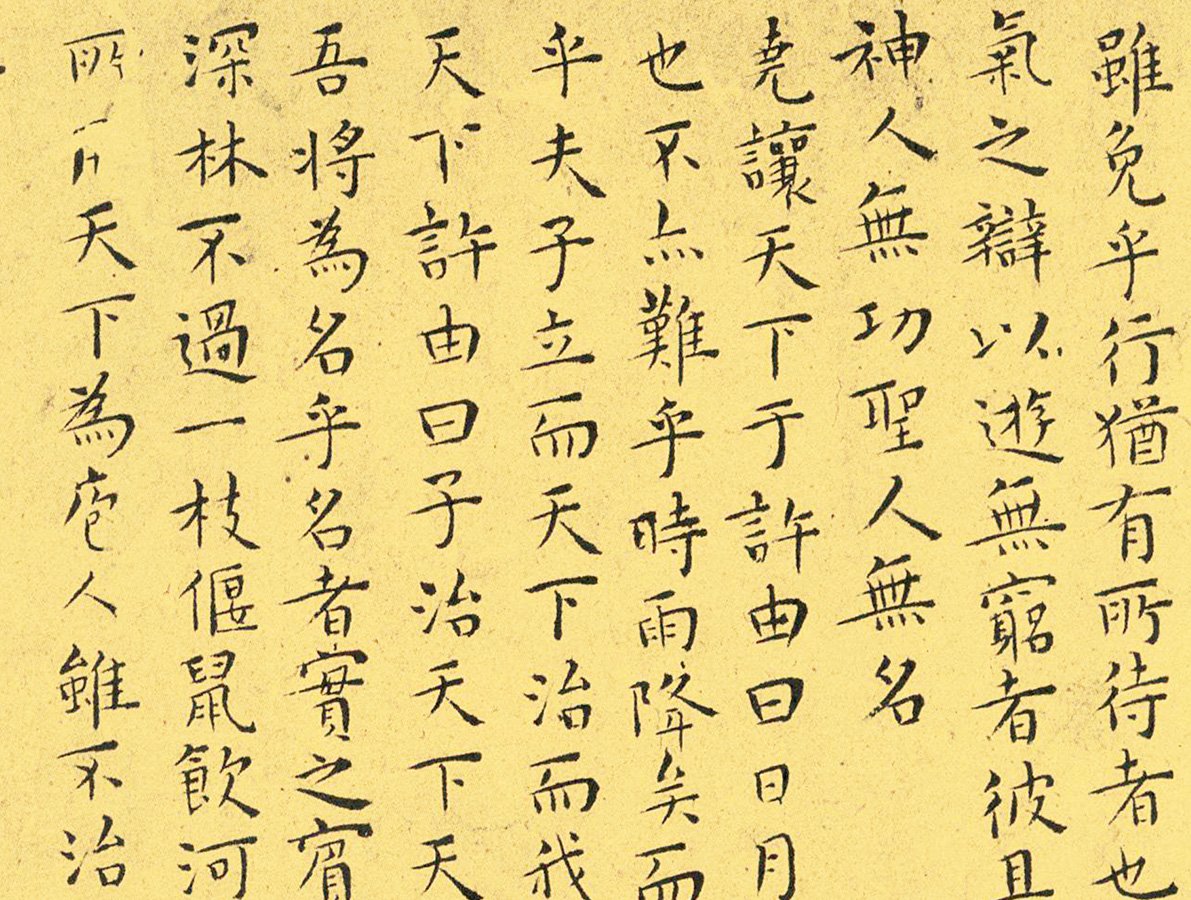 雖免乎行猶有所待者也
氣之辯以遊無窮者彼且
神人無功聖人無名
堯讓天下于許由曰日月
也不亦難乎時雨降矣而
乎夫子立而天下治而我
天下許由曰子治天下天
吾將為名乎名者實之賓
深林不過一枝偃鼠飲河
所天下為庖人雖不治